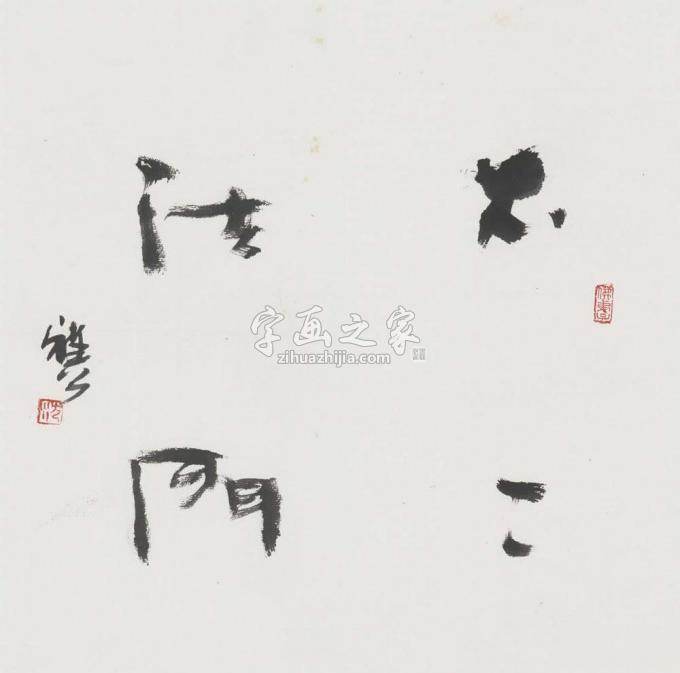 不二
法門
字画之家
zihuazhijia.com